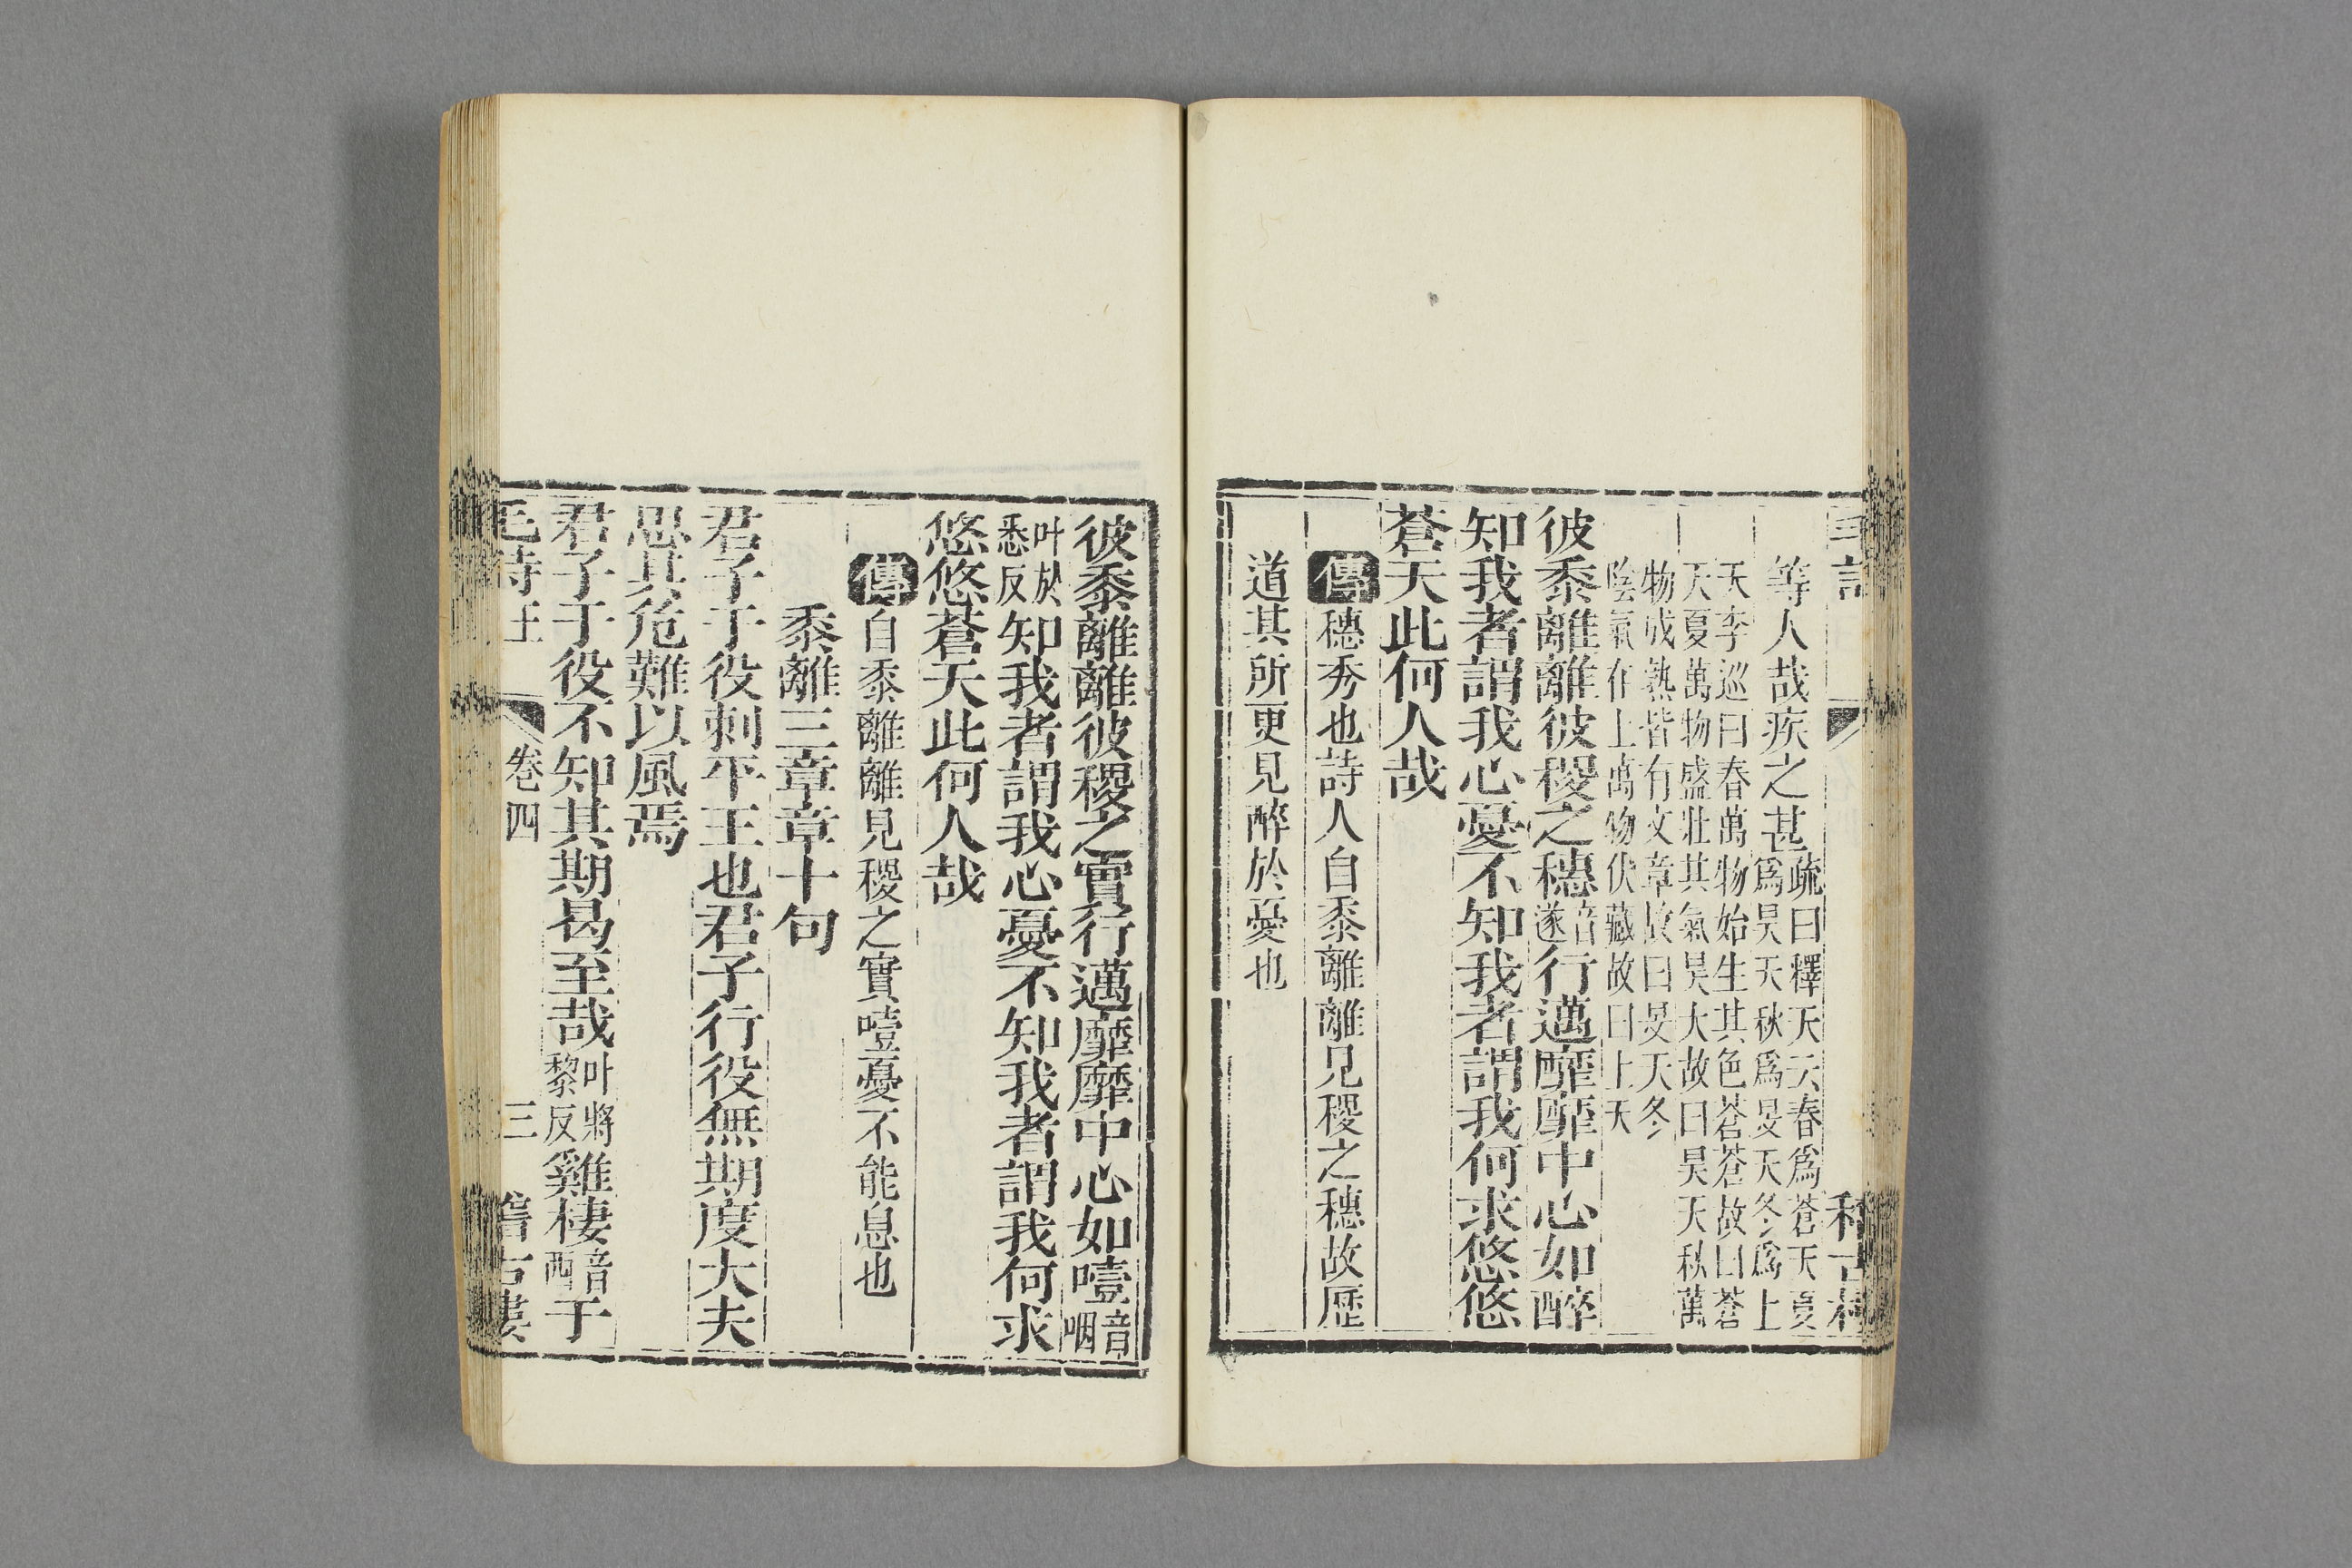 等人哉疾之甚疏曰釋天云春爲蒼天夏
爲昊天秋爲旻天冬爲上
天李巡曰春萬物始生其色蒼蒼故曰蒼
天夏萬物盛壯其氣昊大故曰昊天秋萬
物成熟皆有文章故曰旻天冬
陰氣在上萬物伏藏故曰上天
彼黍離離彼稷之穗音遂行邁靡靡中心如醉
知我者謂我心憂不知我者謂我何求悠悠
蒼天此何人哉
傳穗秀也詩人自黍離離見稷之穗故歷
道其所更見醉於憂也
彼黍離離彼稷之實行邁靡靡中心如噎音咽
叶於悉反知我者謂我心憂不知我者謂我何求
悠悠蒼天此何人哉
傳自黍離離見稷之實噎憂不能息也
黍離三章章十句
君子于役刺平王也君子行役無期度大夫
思其危難以風焉
君子于役不知其期曷至哉叶將黎反雞棲音西于
毛詩王 卷四 三 稽古樓